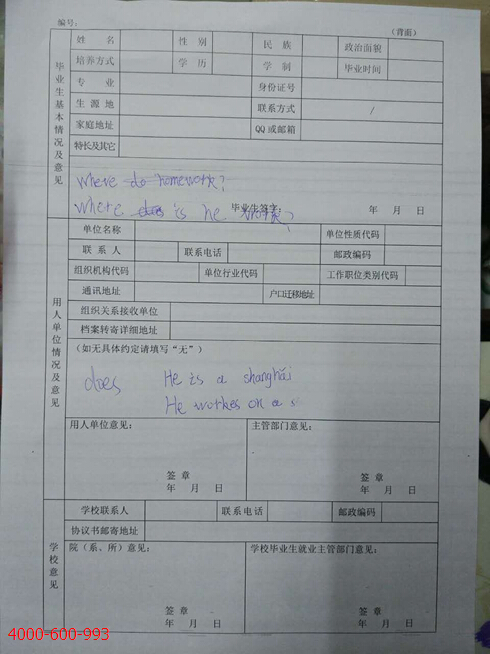 编号： （背面）
毕业生基本情况及意见
姓 名 性 别 民 族 政治面貌
培养方式 学 历 学 制 毕业时间
专 业 身份证号
生 源 地 联系方式 /
家庭地址 QQ或邮箱
特长及其它
where do homework?
where does is he works?
毕业生签字： 年 月 日
用人单位情况及意见
单位名称 单位性质代码
联 系 人 联系电话 邮政编码
组织机构代码 单位行业代码 工作职位类别代码
通讯地址 户口迁移地址
组织关系接收单位
档案转寄详细地址
（如无具体约定请填写“无”）
does He is a shanghai
He workes on a s
用人单位意见： 主管部门意见：
签 章 签 章
年 月 日 年 月 日
学校意见
学校联系人 联系电话 邮政编码
协议书邮寄地址
院（系、所）意见： 学校毕业生就业主管部门意见：
签 章 签 章
年 月 日 年 月 日
4000-600-993